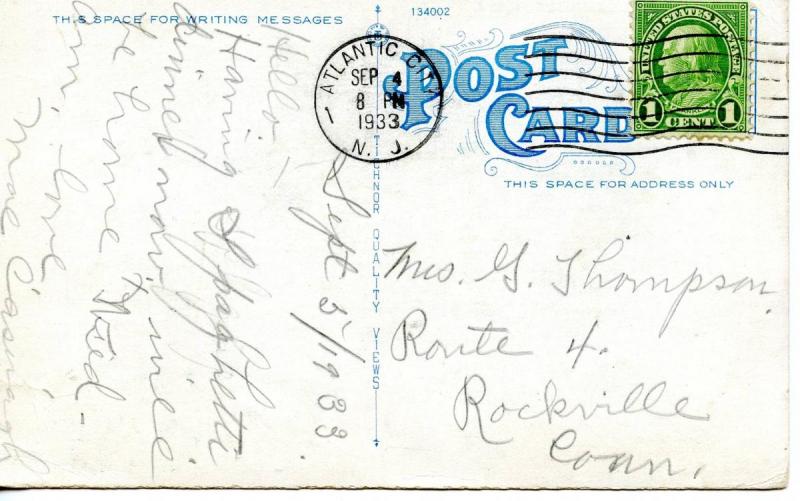 THIS SPACE FOR WRITING MESSAGES
134002
POST CARD
THIS SPACE FOR ADDRESS ONLY
UNITED STATES POSTAGE
1 CENT 1
ATLANTIC CITY
SEP 4
8 PM
1933
N. J.
TICHNOR QUALITY VIEWS
Hello — Sept 5/1933
Having Spaghetti
dinner now, will
be home Wed -
a.m. Love
Mae
Mrs. G. Thompson
Route 4.
Rockville
Conn.